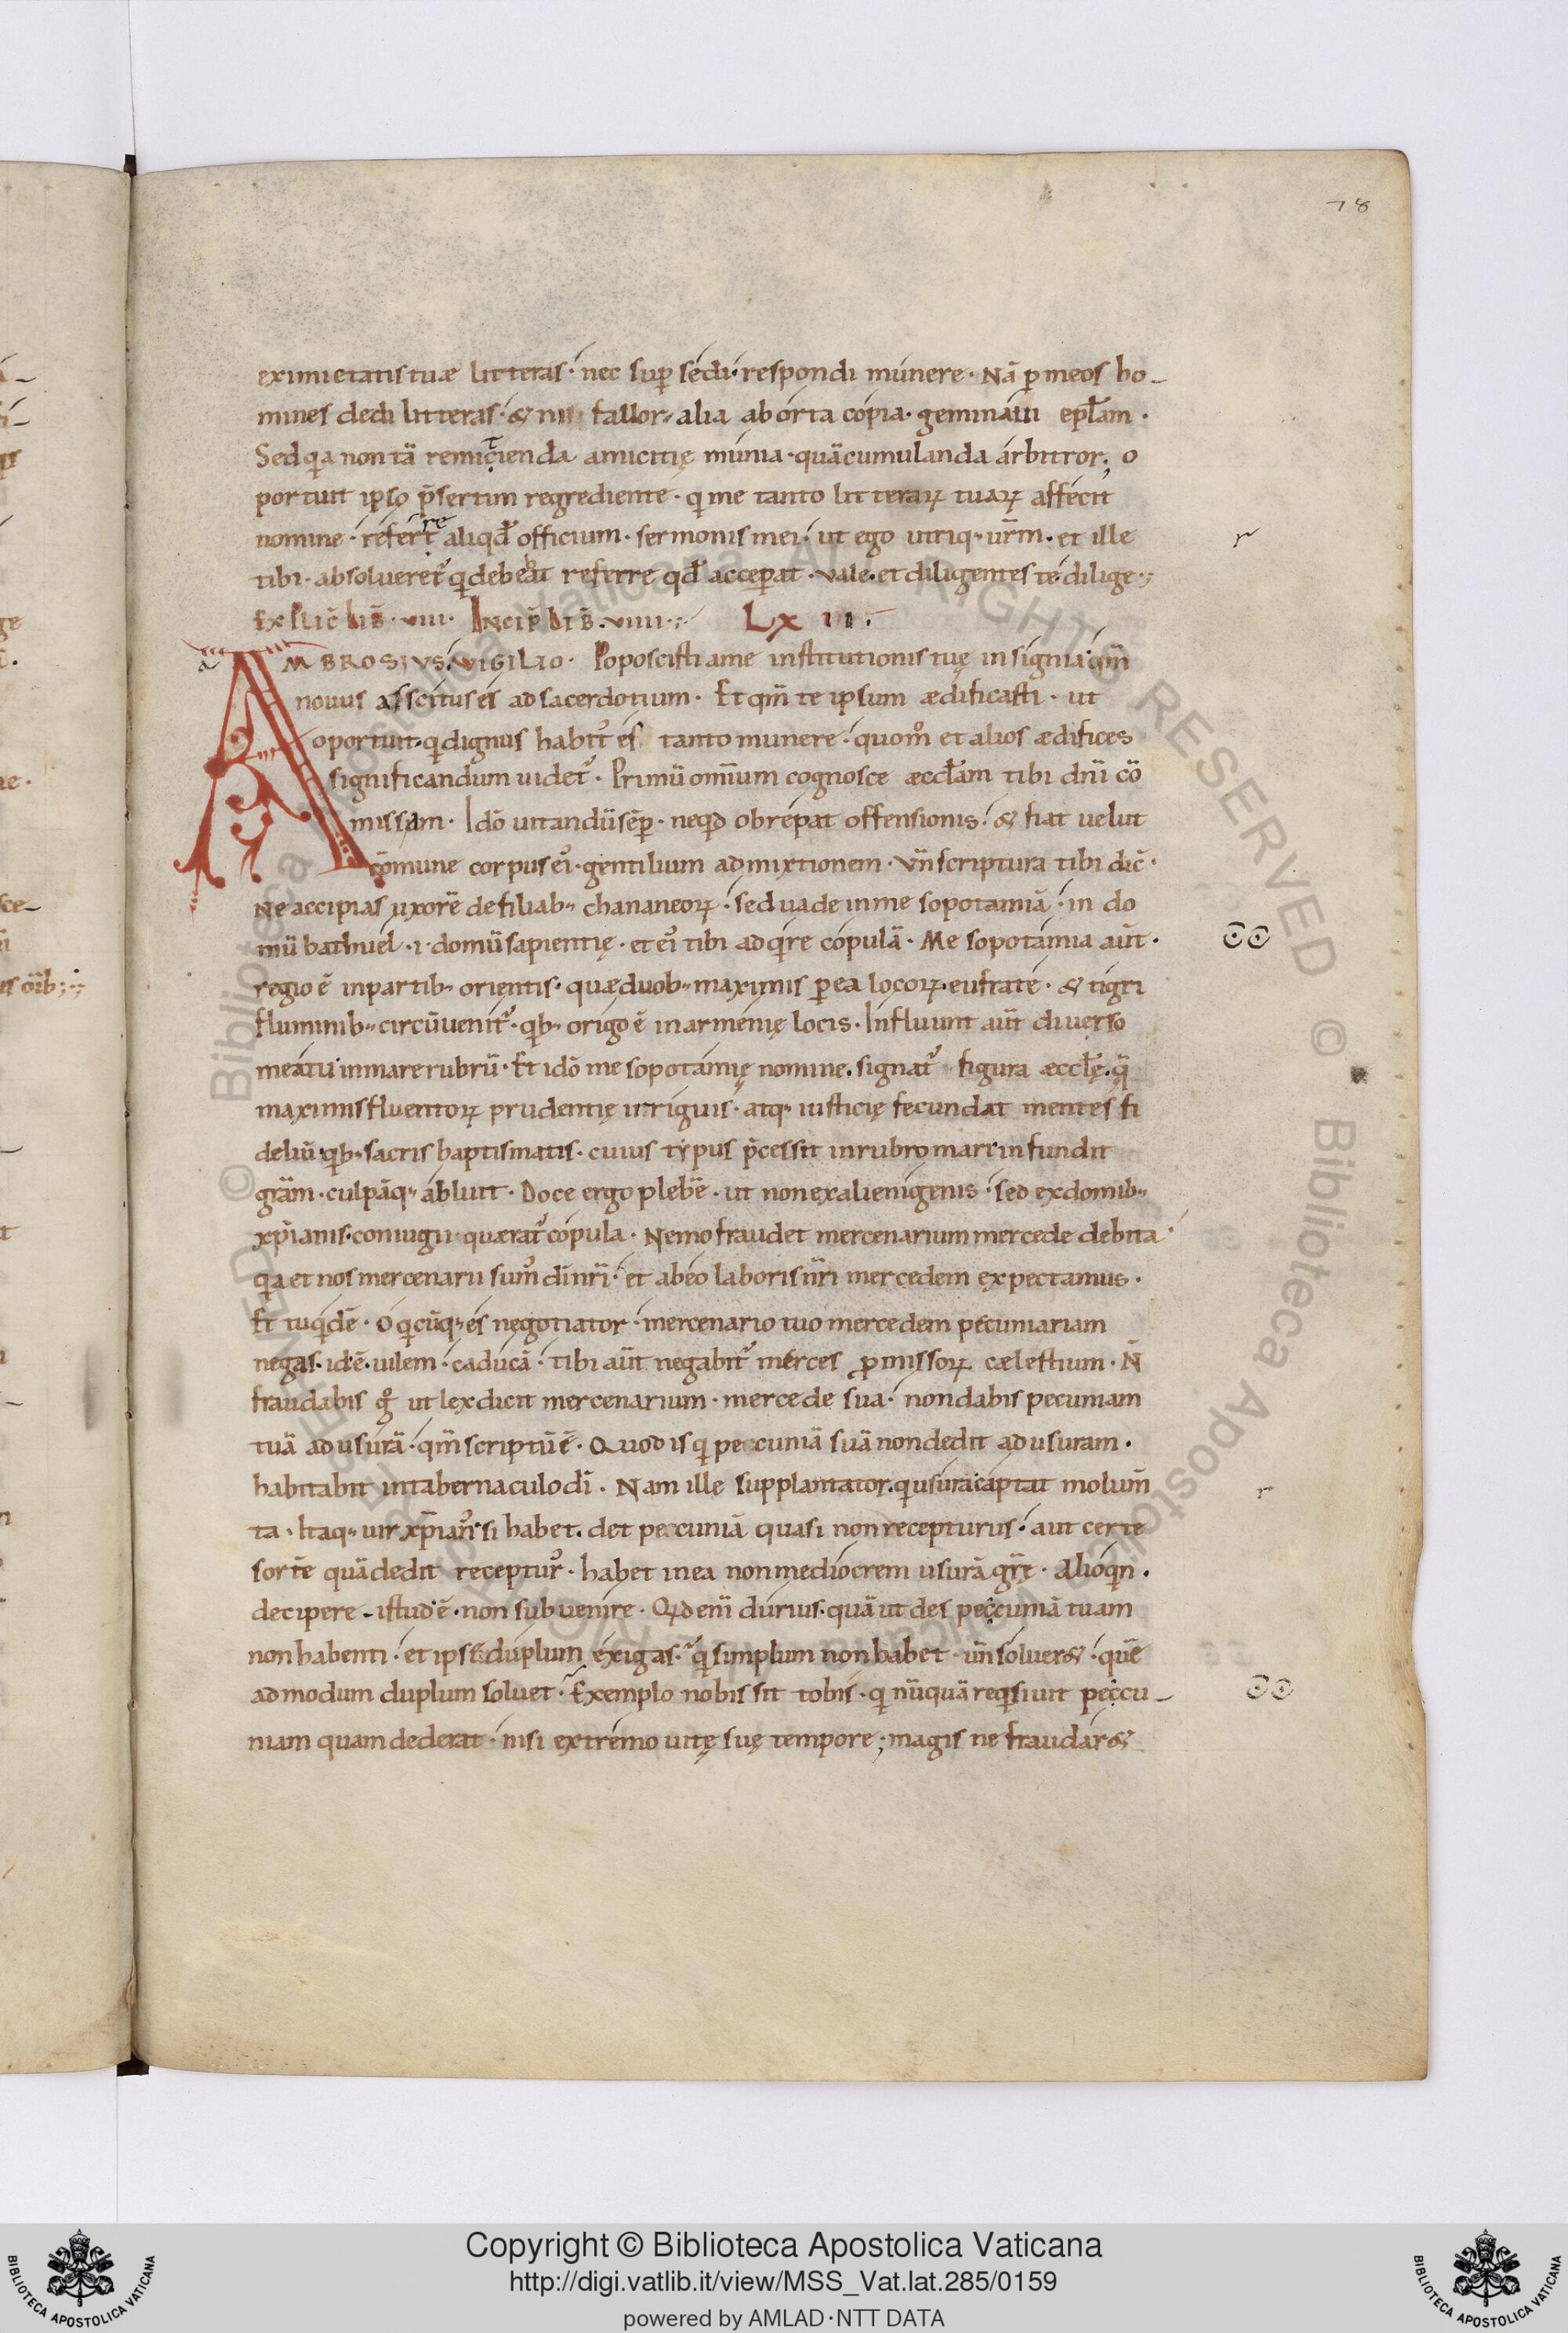 78
eximietatis tuæ litteras · nec sup̄ sedi · respondi munere · Nā p̄ meos ho-
mines dedi litteras · & ni fallor · alia aborta copia · geminaui ep̄lam ·
Sed qa non tā remittienda amicitię munia · quā cumulanda arbitror ; o
portuit ipso p̄sertim regrediente · q me tanto litterarꝝ tuarꝝ affecit
nomine · referre aliqđ officium · sermonis mei · ut ego utriq · urm̄ · et ille
tibi · absolueret᷒ q debebat referre qđ acceperat · vale · et diligentes te dilige ·;
Explic̄ Lib̄ · viii · Incip̄ Lib̄ · viiii · LX III ·
AMBROSIUS VIGILIO · Poposcisti a me institutionis tuę insignia · qm̄
nouus asscitus es ad sacerdotium · Et qm̄ te ipsum ædificasti · ut
oportuit · q dignus habit᷒ es tanto munere · quom̊ et alios ædifices
significandum uidet᷒ · Primū omnium cognosce æccl̄am tibi dn̄i cō
missam · Idō uitandū sēp · neqd obrepat offensionis · & fiat uelut
cōmune corpus ei᷒ · gentilium admixtionem · Vn̄ scriptura tibi dic̄ ·
Ne accipias uxorē de filiab · chananeorꝝ · sed uade in mesopotamiā · in do
mū bathuel · i · domū sapientię · et ei᷒ tibi adqre copulā · Mesopotamia aūt ·
regio ē in partib · orientis · quæ duob · maximis p̄ ea locorꝝ · eufrate · & tigri
fluminib · circūuenit᷒ · qb · origo ē in armenię locis · Influunt aūt diuerso
meatu in mare rubrū · Et idō mesopotamię nomine · signat᷒ figura æccl̄ę · q̄
maximis fluentorꝝ prudentię irriguis · atq · iusticię fecundat mentes fi
deliū · qb · sacris baptismatis · cuius typus p̄cessit in rubro mari infundit
grām · culpāq · abluit · Doce ergo plebē · ut non ex alienigenis · sed ex domib ·
xp̄ianis · coniugii quærat᷒ copula · Nemo fraudet mercenarium mercede debita ·
qa et nos mercenarii sum᷒ dī nr̄i · et ab eo laboris nr̄i mercedem expectamus ·
Et tu qdē · o qcūq · es negotiator · mercenario tuo mercedem pecuniariam
negas · id ē · uilem · caducā · tibi aūt negabit᷒ merces ꝓmissorꝝ cælestium · N̄
fraudabis g̊ ut lex dicit mercenarium · mercede sua · non dabis pecuniam
tuā ad usurā · qm̄ scriptū ē · Quod is q pecuniā suā non dedit ad usuram ·
habitabit in tabernaculo dī · Nam ille supplantatur · q usurā captat molum̄
ta · Itaq · uir xp̄ian᷒ si habet · det pecuniā quasi non recepturus · aut certe
sortē quā dedit receptur᷒ · habet in ea non mediocrem usurā gr̄ę · Alioqn ·
decipere · istud ē · non subuenire · Qd enī durius · quā ut des peccuniā tuam
non habenti · et ipse duplum exigas · q simplum non habet · un̄ soluer& · quē
admodum duplum soluet · Exemplo nobis sit tobis · q nūquā reqsiuit peccu-
niam quam dederat · nisi extremo uitę suę tempore ; magis ne fraudar&
Copyright © Biblioteca Apostolica Vaticana
http://digi.vatlib.it/view/MSS_Vat.lat.285/0159
powered by AMLAD·NTT DATA